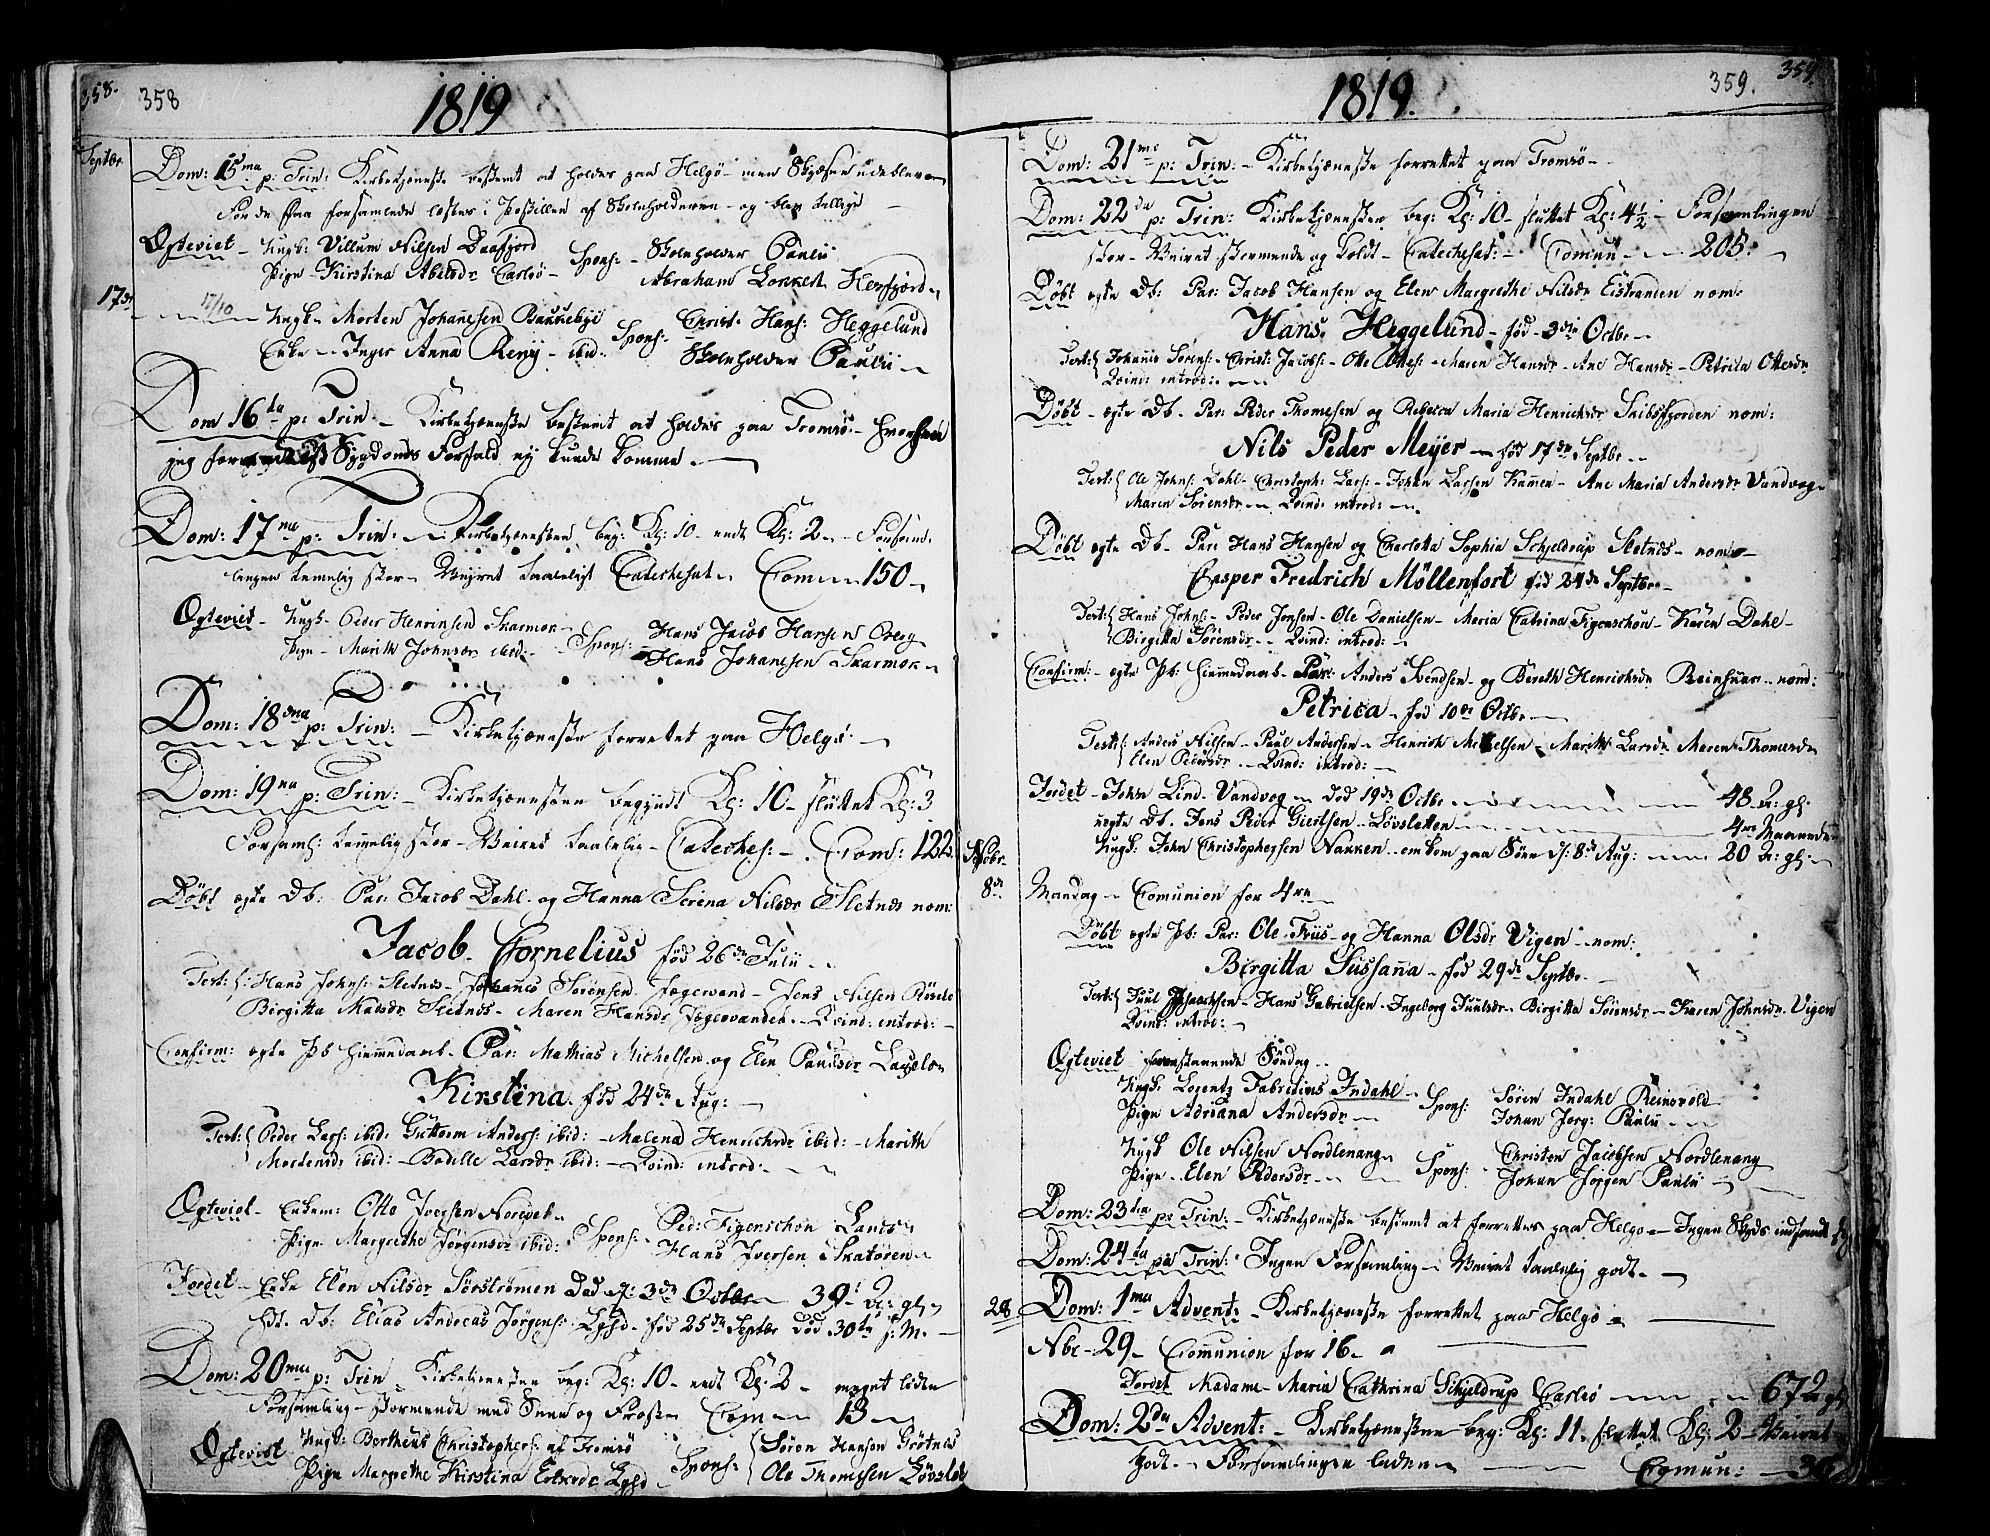 358. 358 1819
Septbr.
Dom: 15ma p: Trin: Kirketjeneste bestemt at holdes paa Helgö - men Skydsen udeblev
for de faa forsamlede læstes i Postillen af Skoleholderen - og blev tillige
Egteviet - Ungk: Villum Nilsen Daafjord Spons: - Skoleholder Paulii
Pige - Kirstina Abelsdr Carlsö - Abraham Hersfjord
17de 17/10 Ungk. Morten Johannesen Spons: Christ: Hans: Heggelund
Enke - Inger Anna Reny - ibid: Skoleholder Paulii
Dom 16ta p: Trin: - Kirketjeneste bestemt at holdes paa Tromsö - hvorhen
jeg formedelst Sygdoms Forfald ej kunde komme.
Dom: 17ma p: Trin: - Kirketjenesten beg: Kl: 10 - endt Kl: 2 - Forsam-
lingen temelig stor - Vejret taaleligt Catechesat - Com - 150
Egteviet - Ungk. Peder Henrichsen Skarmon Spons: - Hans Jacob Hansen
Pige - Marith Johnsdr ibid: - Hans Johannesen Skarmon
Dom: 18ma p: Trin: - Kirketjeneste forrettet paa Helgö
Dom: 19na p: Trin: - Kirketjenesten begyndt Kl: 10 - sluttet Kl: 3
Forsaml: temelig stor - Veiret taalelig - Cateches: - Com: 122
Döbt egte Db: Par: Jacob Dahl og Hanna Serena Nilsdr Sletnes nom:
Jacob Cornelius fød 26de Julii
Test: Hans Johns: Sletnes - Johannes Sørensen Jægervand - Jens Nilsen
Birgitta Madsdr Sletnes - Maren Hansdr Jægervandet - Qvind: introd: -
Confirm: egte Pb hiemmedaab - Par: Mathias Michelsen og Elen Paulsdr
Kirstina fød 24de Aug:
Test: Peder Lars: ibid: Guttorm Anders: ibid: - Malena Henrichsdr ibid: - Marith
Mortensdr ibid: - Bodille Larsdr ibid: - Qvind: introd: -
Egteviet - Enkem: Otto Joersen Spons: Ped: Figenschou
Pige Margrethe Jørgensdr ibid: Hans Iversen Skatøren
Jordet - Enke Elen Nilsdr Sörströmen Død d: 3de Octbr - 39 Ar: gl:
Db: Elias Andreas Jørgens: - fød 25de Septbr død 30te s: M.
Dom: 20ma p: Trin Kirketjenesten beg: Kl: 10 - endt Kl: 2 - meget liden
Forsamling - stormende med Snee og Frost Com - 13
Egteviet Ungk: Berthius Christophers: af Tromsö Spons: Sören Hansen Grötnes
Pige Margrethe Kirstina Ole Thomesen
1819. 359. 359
Dom: 21me p: Trin: - Kirketjeneste forrettet paa Tromsö -
Dom: 22da p: Trin: Kirketjenesten beg: Kl: 10 - sluttet Kl: 4½ - Forsamlingen
stor - Veiret stormende og koldt - Catechesat: - Comun - 205
Döbt egte Db: Par: Jacob Hansen og Elen Margrethe Nilsdr Eistranden nom:
Hans Heggelund - fød - 3die Octbr
Test: Johannis Sörens: - Christ: Jacobs: - Otte Ottes: - Maren Hansdr - Ane Hansdr - Petrica Ottesdr
Qvind: introd:
Döbt - egte Db. Par: Peder Thomesen og Rebecca Maria Henrichsdr nom:
Nils Peder Meyer - fød 17de Septbr
Test: Ole Johns: Dahl - Christoph: Lars: - Johan Larsen - Ane Maria Andersdr Vandvog
Maren Sørensdr - Qvind: introd:
Döbt egte Db. Par: Hans Hansen og Charlotta Sophia Schjeldrup Sletnes - nom:
Casper Fredrich Möllenfort fød 24de Septbr
Test: Hans Johns: - Peder Jensen - Ole Danielsen - Maria Catrina Figenschou - Karen Dahl -
Birgitta Sørensdr - Qvind: introd: -
Confirm: - egte Pb: hiemmedaab - Par: Anders Svendsen - og Bereth Henrichsdr nomd:
Petrica - fød 10de Octb
Test: Anders Nilsen - Paul Andersen - Henrich Michelsen - Marith Larsdr Maren Thomesdr
Elen Pedersdr - Qvind: introd:
Jordet - John Lind - Vandvog - død 19de Octbr - 48 Ar: gl:
uegte Db. Jens Peder Giertsen - Lövsletten - 4re Maaneder
Ungk: John Christophersen - omkom paa Söen d: 8de Aug: - 20 Ar: gl:
Novbr.
8de Mandag - Comunion for 4re
Döbt egte Pb: Par: Ole Friis og Hanna Olsdr Vigen - nom:
Birgitta Sussana - fød 29de Septbr.
Test: Juul Isaachsen - Hans Gabrielsen - Ingeborg Juulsdr - Birgitta Sörensdr - Karen Johnsdr Vigen
Qvind: introd:
Egteviet Søndag
Ungk: Lorentz Fabritius Indahl Spons: Sören Indahl Reinsvold
Pige Adriana Andersdr Johan Jörg: Paulii
Ungk Ole Nilsen Nordlenang Spons: Christen Jacobsen Nordlenang
Pige - Elen Pedersdr Johan Jörgen Paulii
Dom: 23tia p: Trin: - Kirketjeneste bestemt at forrettes paa Helgö - Ingen Skyds indfandt sig
Dom: 24ta p: Trin: Ingen Forsamling - Veiret taalelig godt.
28 Dom: 1ma Advent: - Kirketjeneste forrettet paa Helgö
Nbr - 29 - Comunion for 16
Jordet Madame - Maria Cathrina Schjeldrup Carlsö - 67 Ar gl
Dom: 2da Advent: - Kirketjenesten beg: Kl: 11. sluttet Kl: 2 - Veiret
godt - Forsamlingen liden - Comun: